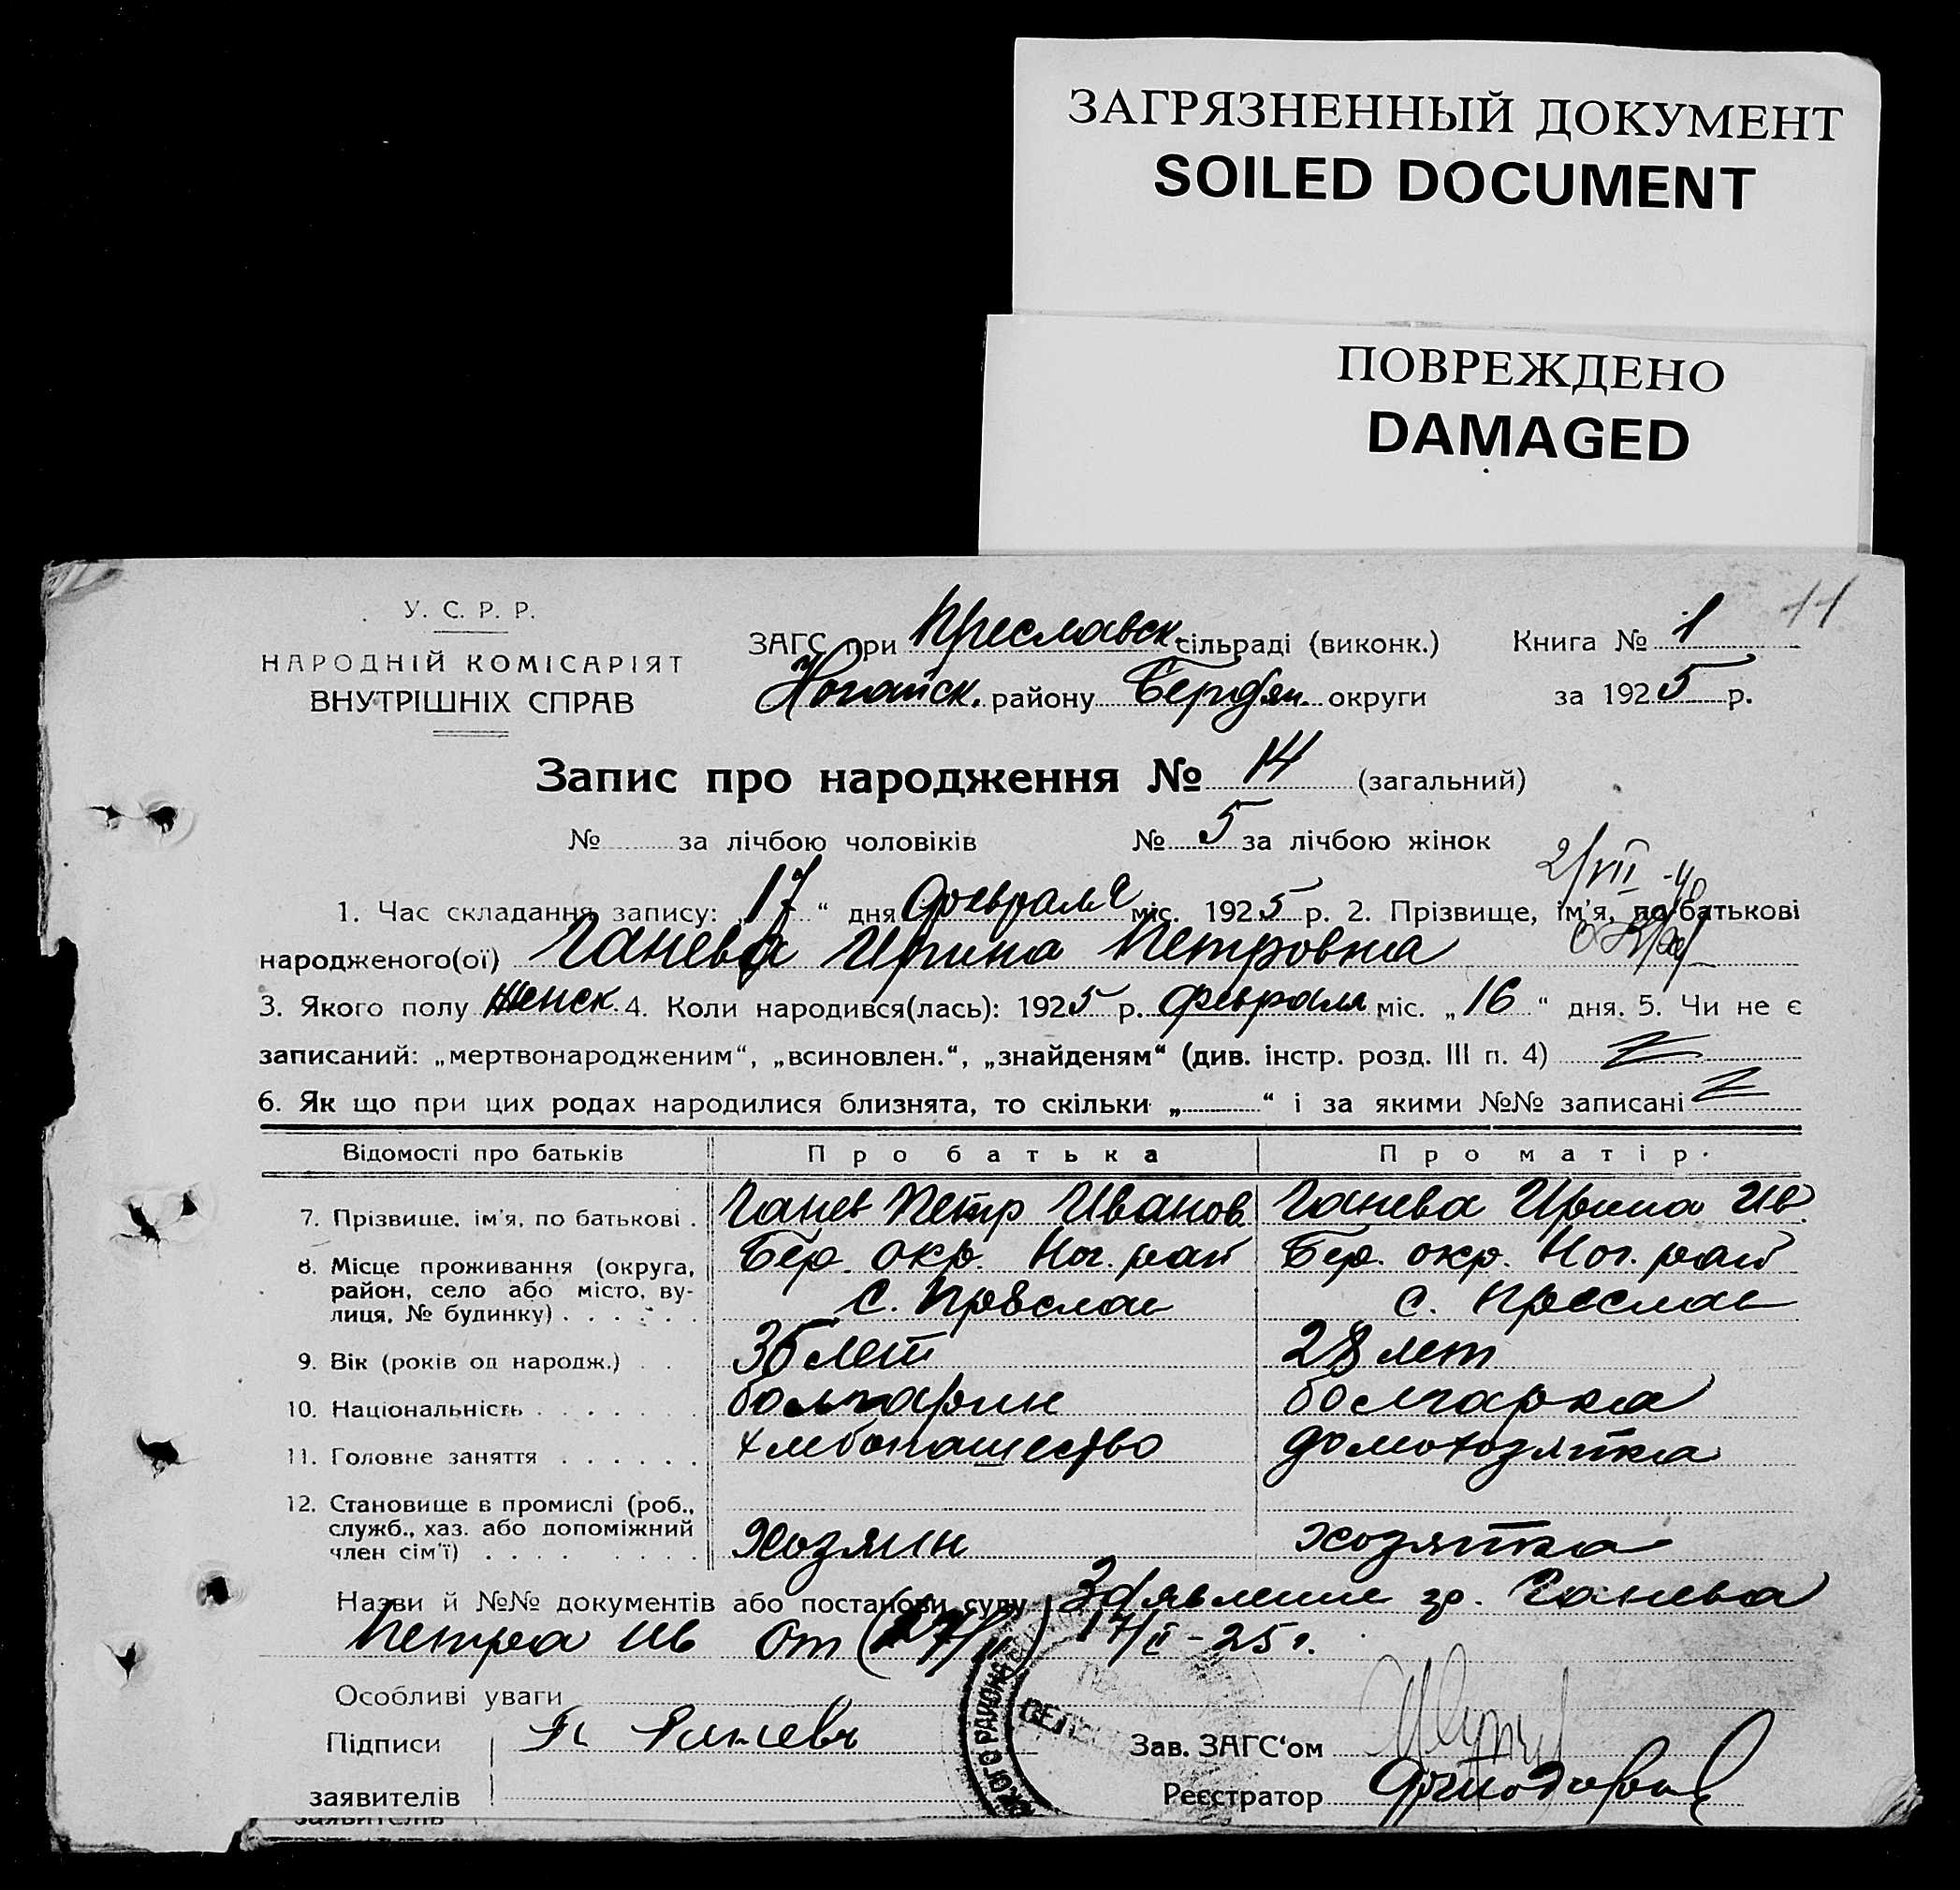 ЗАГРЯЗНЕННЫЙ ДОКУМЕНТ
SOILED DOCUMENT
ПОВРЕЖДЕНО
DAMAGED
11
У. С. Р. Р.
НАРОДНІЙ КОМІСАРІЯТ
ВНУТРІШНІХ СПРАВ
ЗАГС при Преславск. сільраді (виконк.) Книга № 1
Ногайск. району Бердян. округи за 1925 р.
Запис про народження № 14 (загальний)
№ за лічбою чоловіків № 5 за лічбою жінок
2/VII -40
1. Час складання запису: 17 “ дня февраля міс. 1925 р. 2. Прізвище, ім'я, по батькові
народженого(ої) Ганева Ирина Петровна
3. Якого полу женск. 4. Коли народився(лась): 1925 р. февраля міс. „16“ дня. 5. Чи не є
записаний: „мертвонародженим“, „всиновлен.“, „знайденям“ (див. інстр. розд. III п. 4)
6. Як що при цих родах народилися близнята, то скільки „ “ і за якими №№ записані
Відомості про батьків Про батька Про матір.
7. Прізвище, ім'я, по батькові . Ганев Петр Иванов. Ганева Ирина Ив.
8. Місце проживання (округа, Бер. окр. Ног. рай Бер. окр. Ног. рай
район, село або місто, ву- с. Преслав с. Преслав
лиця, № будинку) . . . . . .
9. Вік (років од народж.) . . лет 28 лет
10. Національність . . . . . . . болгарин болгарка
11. Головне заняття . . . . . . хлебопашество домохозяйка
12. Становище в промислі (роб.,
служб., хаз. або допоміжний
член сім'ї) . . . . . . . . Хозяин хозяйка
Назви й №№ документів або постанови суду Заявление гр. Ганева
Петра Ив от (17/II) 17/II - 25 г.
Особливі уваги
Підписи П. Ганевъ Зав. ЗАГС‘ом
заявителів Реєстратор
СКОГО РАЙОНА
заявителів